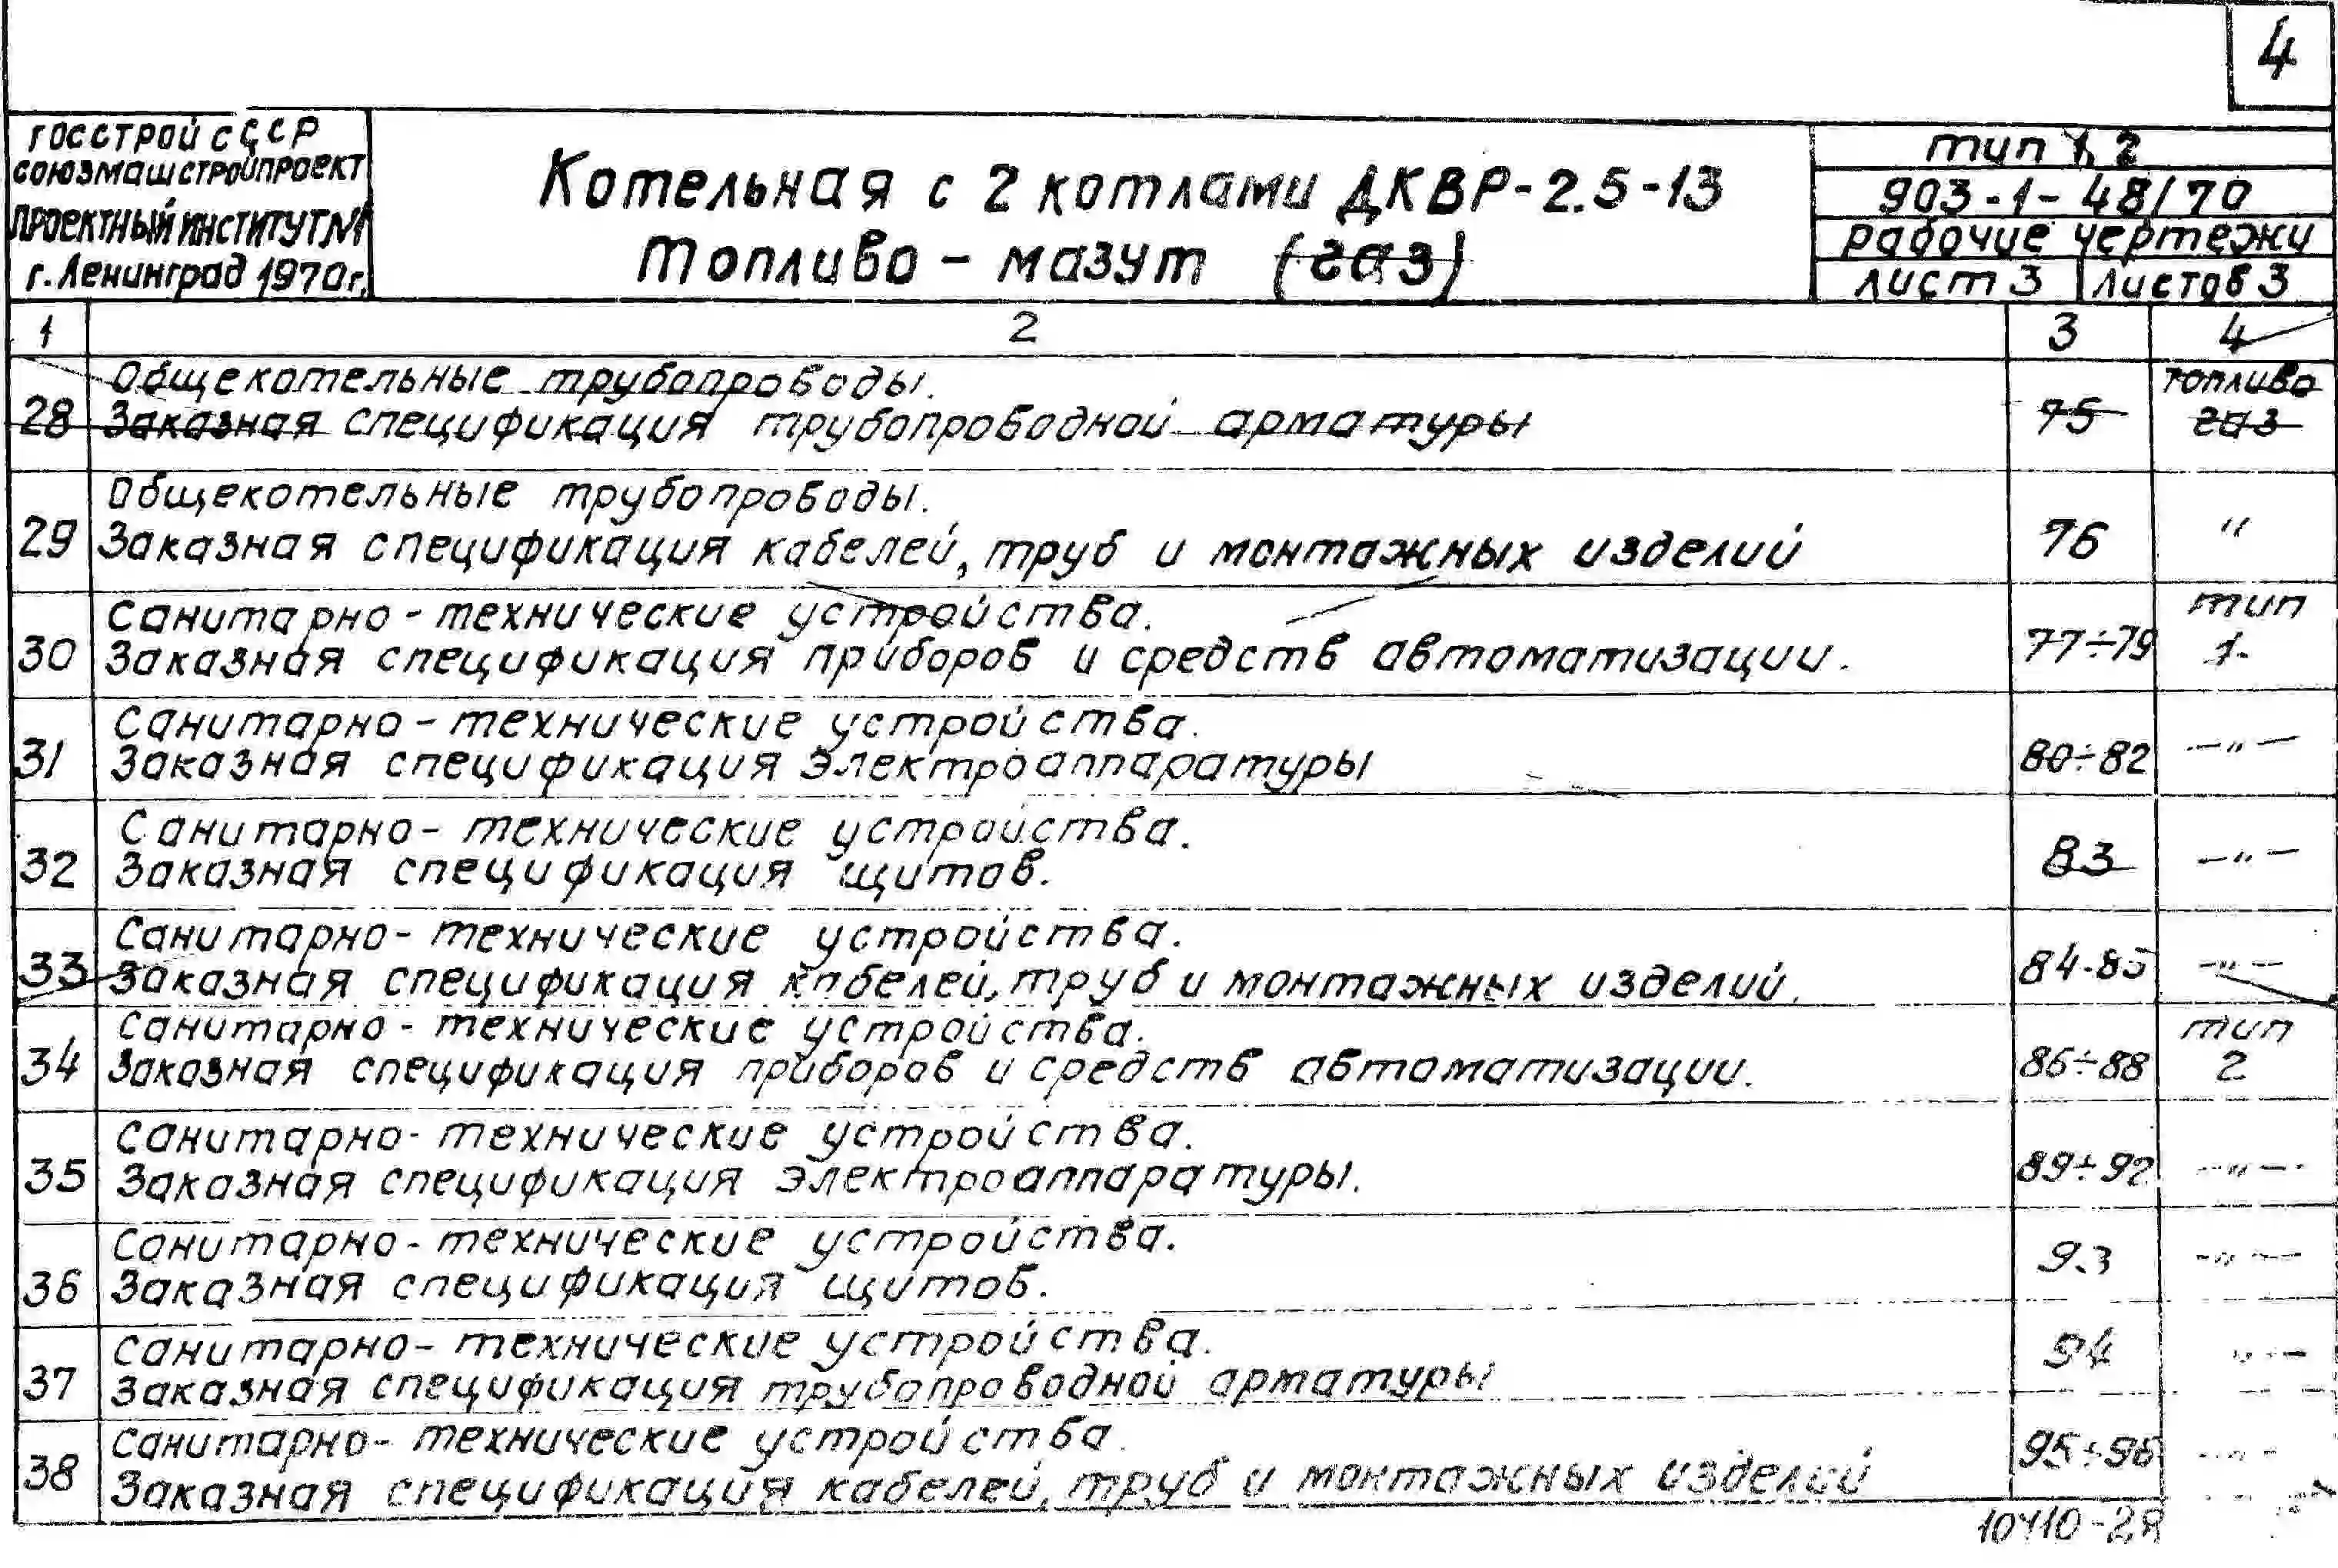 4
ГОССТРОЙ СССР
СОЮЗМАШСТРОЙПРОЕКТ
ПРОЕКТНЫЙ ИНСТИТУТ №1
г. Ленинград 1970г.
Котельная с 2 котлами ДКВР-2.5-13
Топливо - мазут (газ)
тип 1, 2
903-1-48/70
рабочие чертежи
лист 3 листов 3
1 2 3 4
Общекотельные трубопроводы. топливо
28 Заказная спецификация трубопроводной арматуры 75 газ
Общекотельные трубопроводы.
29 Заказная спецификация кабелей, труб и монтажных изделий 76 "
Санитарно-технические устройства. тип
30 Заказная спецификация приборов и средств автоматизации. 77÷79 1
Санитарно-технические устройства.
31 Заказная спецификация электроаппаратуры 80÷82 —"—
Санитарно-технические устройства.
32 Заказная спецификация щитов. 83 —"—
Санитарно-технические устройства.
33 Заказная спецификация кабелей, труб и монтажных изделий. 84-85 —"—
Санитарно-технические устройства. тип
34 Заказная спецификация приборов и средств автоматизации. 86÷88 2
Санитарно-технические устройства.
35 Заказная спецификация электроаппаратуры. 89÷92 —"—
Санитарно-технические устройства.
36 Заказная спецификация щитов. 93 —"—
Санитарно-технические устройства.
37 Заказная спецификация трубопроводной арматуры 94 "—
Санитарно-технические устройства.
38 Заказная спецификация кабелей, труб и монтажных изделий 95÷96 —"—